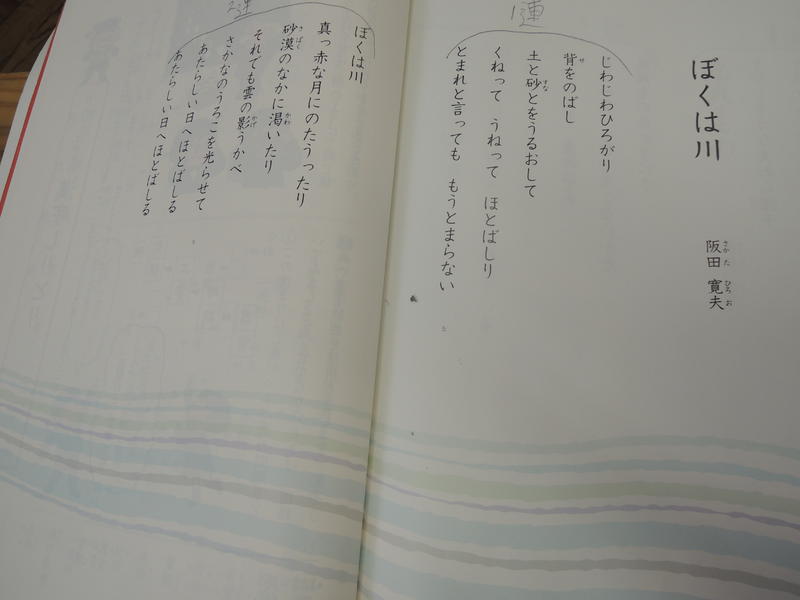 ぼくは川
阪田 寛夫
さかた ひろお
1連
じわじわひろがり
背をのばし
せ
土と砂とをうるおして
すな
くねって うねって ほとばしり
とまれと言っても もうとまらない
2連
ぼくは川
真っ赤な月にのたうったり
砂漠のなかに渇いたり
さばく かわ
それでも雲の影うかべ
かげ
さかなのうろこを光らせて
あたらしい日へほとばしる
あたらしい日へほとばしる